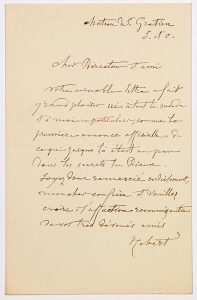 Station de St Gratien
S. & O.
Cher Directeur et ami
votre aimable lettre a fait
grand plaisir
et à moi en particulier, comme la
première annonce officielle de
ce qui jusque là était un peu
dans les secrets des Dieux.
Soyez donc remercié
mon cher confrère et veuillez
croire à l'affection reconnaissante
de votre dévoué ami
Robert